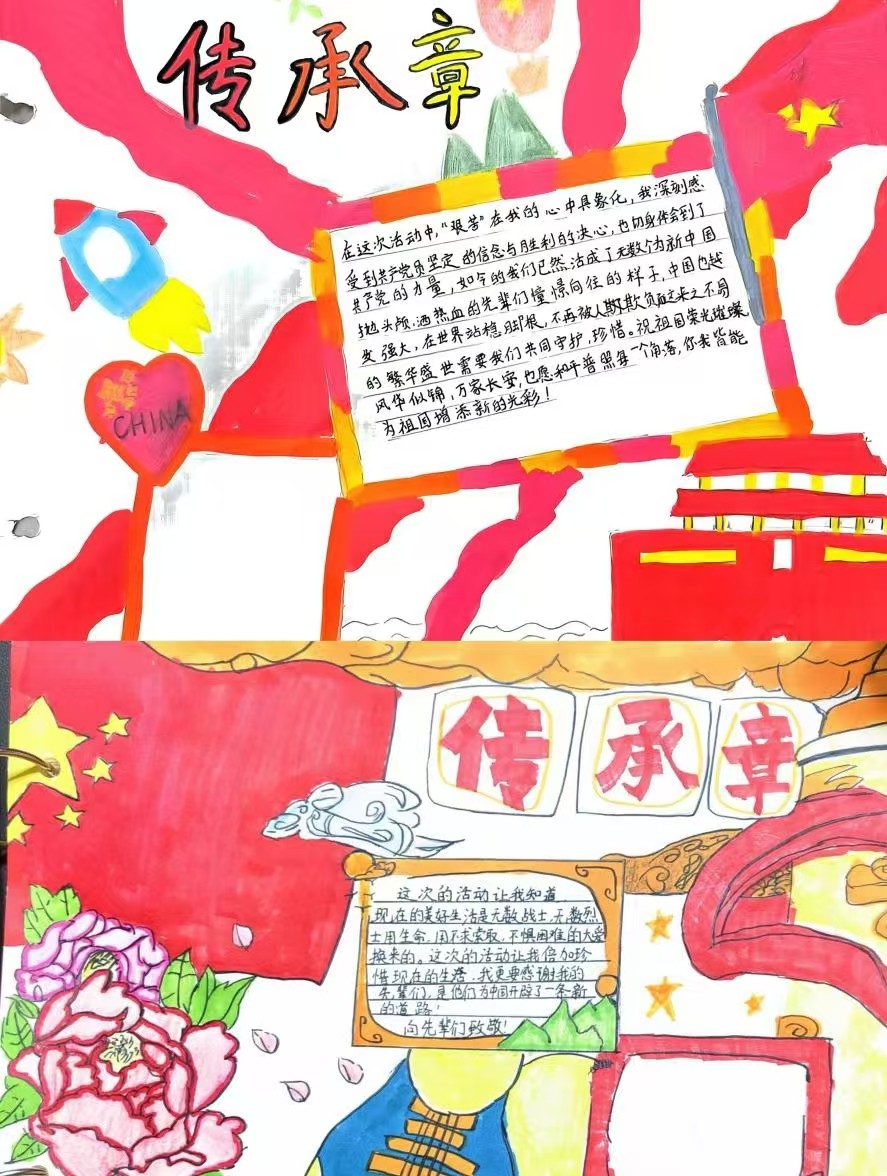 传承章
在这次活动中,"艰苦"在我的心中具象化,我深刻感
受到共产党员坚定的信念与胜利的决心,也切身体会到了
共产党的力量,如今的我们已然活成了无数个为新中国
抛头颅,洒热血的先辈们憧憬向往的样子,中国也越
发强大,在世界站稳脚根,不再被人欺负,来之不易
的繁华盛世需要我们共同守护,珍惜。祝祖国荣光璀璨
风华似锦,万家长安,也愿和平普照每一个角落,你我皆能
为祖国增添新的光彩!
CHINA
传承章
这次的活动让我知道,
现在的美好生活是无数战士,无数烈
士用生命,用不求索取,不惧困难的大爱
换来的。这次的活动让我倍加珍
惜现在的生活,我更要感谢我的
先辈们,是他们为中国开辟了一条新
的道路!
向先辈们致敬!